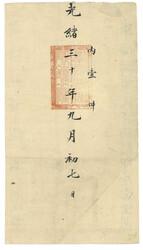 內壹件
光緒三十年九月初七日